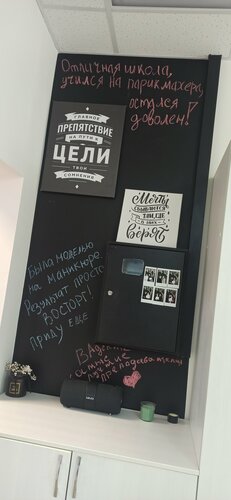 Отличная школа,
учился на парикмахера,
остался
доволен!
ГЛАВНОЕ
ПРЕПЯТСТВИЕ
НА ПУТИ К
ЦЕЛИ
ТВОИ
СОМНЕНИЯ
Мечты
сбываются
там, где
в них
верят
Была моделью
на маникюре.
Результат просто
ВОСТОРГ!
ПРИДУ ЕЩЁ
В
лучшие
преподаватели